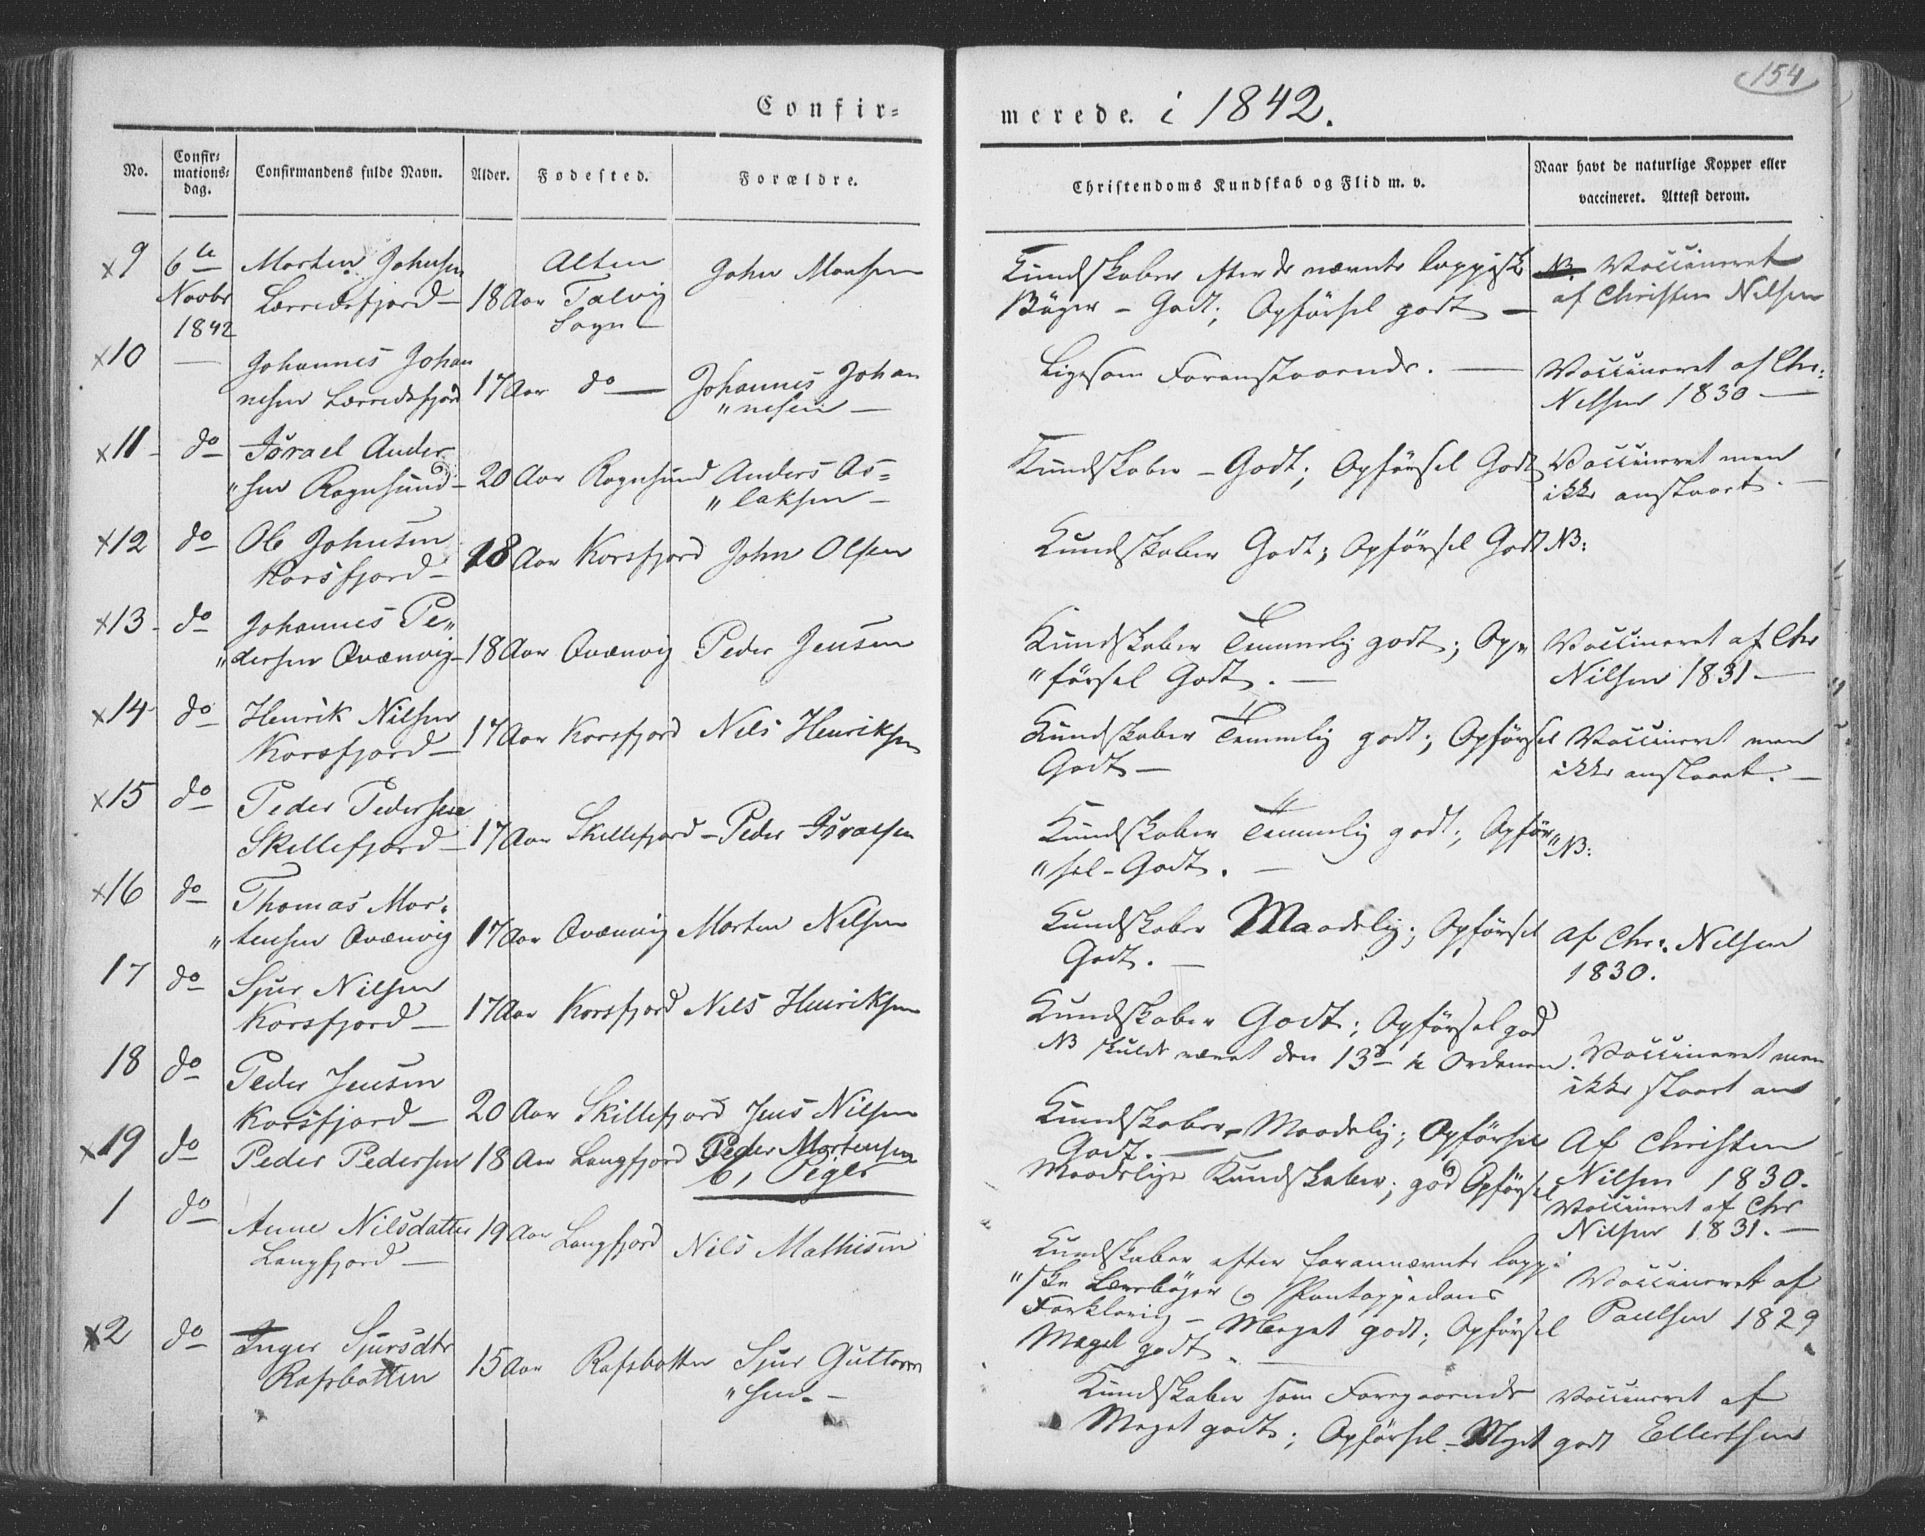 154
Confir=
merede. i 1842.
No.
Confir=
mations=
dag.
Confirmandens fulde Navn.
Alder.
Fødested.
Forældre.
Christendoms Kundskab og Flid m. v.
Naar havt de naturlige Kopper eller
vaccineret. Attest derom.
x9 6te Morten Johnsen Alten John Monsen
Novbr Lerredsfjord – 18 Aar Talvig
1842 Sogn
Kundskaber efter de nævnte lappiske
Bøger – Godt; Opførsel godt –
Vaccineret
af Christen Nilsen
x10 — Johannes Johan
nesen Lerredsfjord 17 Aar do — Johannes Johan
"nesen –
Ligesom Foranstaaende. —
Vaccineret af Chr:
Nilsen 1830 —
x11 – do Israel Ander
"sen Rognsund – 20 Aar Rognsund Anders As=
"laksen –
Kundskaber – Godt; Opførsel Godt
Vaccineret men
ikke anslaaet. –
x12 do Ole Johnsen
Korsfjord – 18 Aar Korsfjord John Olsen
Kundskaber Godt; Opførsel Godt NB:
x13 – do Johannes Pe"
"dersen Qvænvig – 18 Aar Qvænvig Peder Jensen
Kundskaber Temmelig godt; Op"
"førsel Godt. —
Vaccineret af Chr
Nilsen 1831 —
x14 do Henrik Nilsen
Korsfjord – 17 Aar Korsfjord Nils Henriksen
Kundskaber Temmelig godt; Opførsel
Godt –
Vaccineret men
ikke anslaaet. –
x15 do Peder Pedersen
Skillefjord – 17 Aar Skillefjord – Peder Israelsen
Kundskaber Temmelig godt; Opfør"
"sel – Godt. –
NB:
x16 do Thomas Mor=
"tensen Qvænvig 17 Aar Qvænvig Morten Nilsen
Kundskaber Maadelig; Opførsel
Godt. –
af Chr: Nilsen
1830.
17 do Sjur Nilsen
Korsfjord – 17 Aar Korsfjord Nils Henriksen
Kundskaber Godt; Opførsel god
NB skulde været den 13de i Ordenen.
Vaccineret men
ikke slaaet an
18 do Peder Jensen
Korsfjord – 20 Aar Skillefjord Jens Nilsen
Kundskaber – Maadelig; Opførsel
Godt. —
Af Christen
Nilsen 1830.
x19 do Peder Pedersen 18 Aar Langfjord Peder Mortensen
Maadelige Kundskaber; god Opførsel
Vaccineret af Chr
Nilsen 1831. –
b, Piger
1 do Anne Nilsdatter 19 Aar Langfjord Nils Mathisen
Langfjord —
Kundskaber efter forannævnte lappi
"ske Lærebøger og Pontoppidans
Forklaring – Meget godt; Opførsel
Meget godt. —
Vaccineret af
Paulsen 1829
x2 do Inger Sjursdtr
Rafsbotten 15 Aar Rafsbotten Sjur Guttorm
"sen –
Kundskaber som Foregaaende
Meget godt; Opførsel – Meget godt
Vaccineret af
Ellertsen